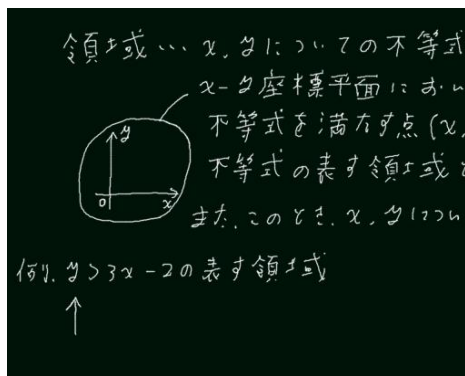 領域… x, yについての不等式
x-y座標平面におい
不等式を満たす点(x,
y
不等式の表す領域
O x
また、このとき、x, yについ
例). y>3x-2の表す領域